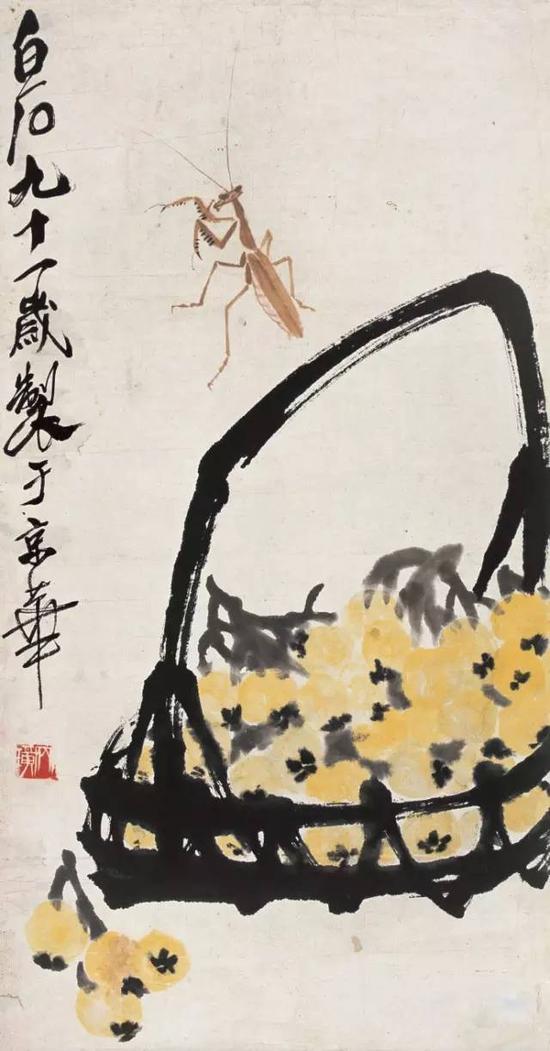 白石九十一歲製于京華